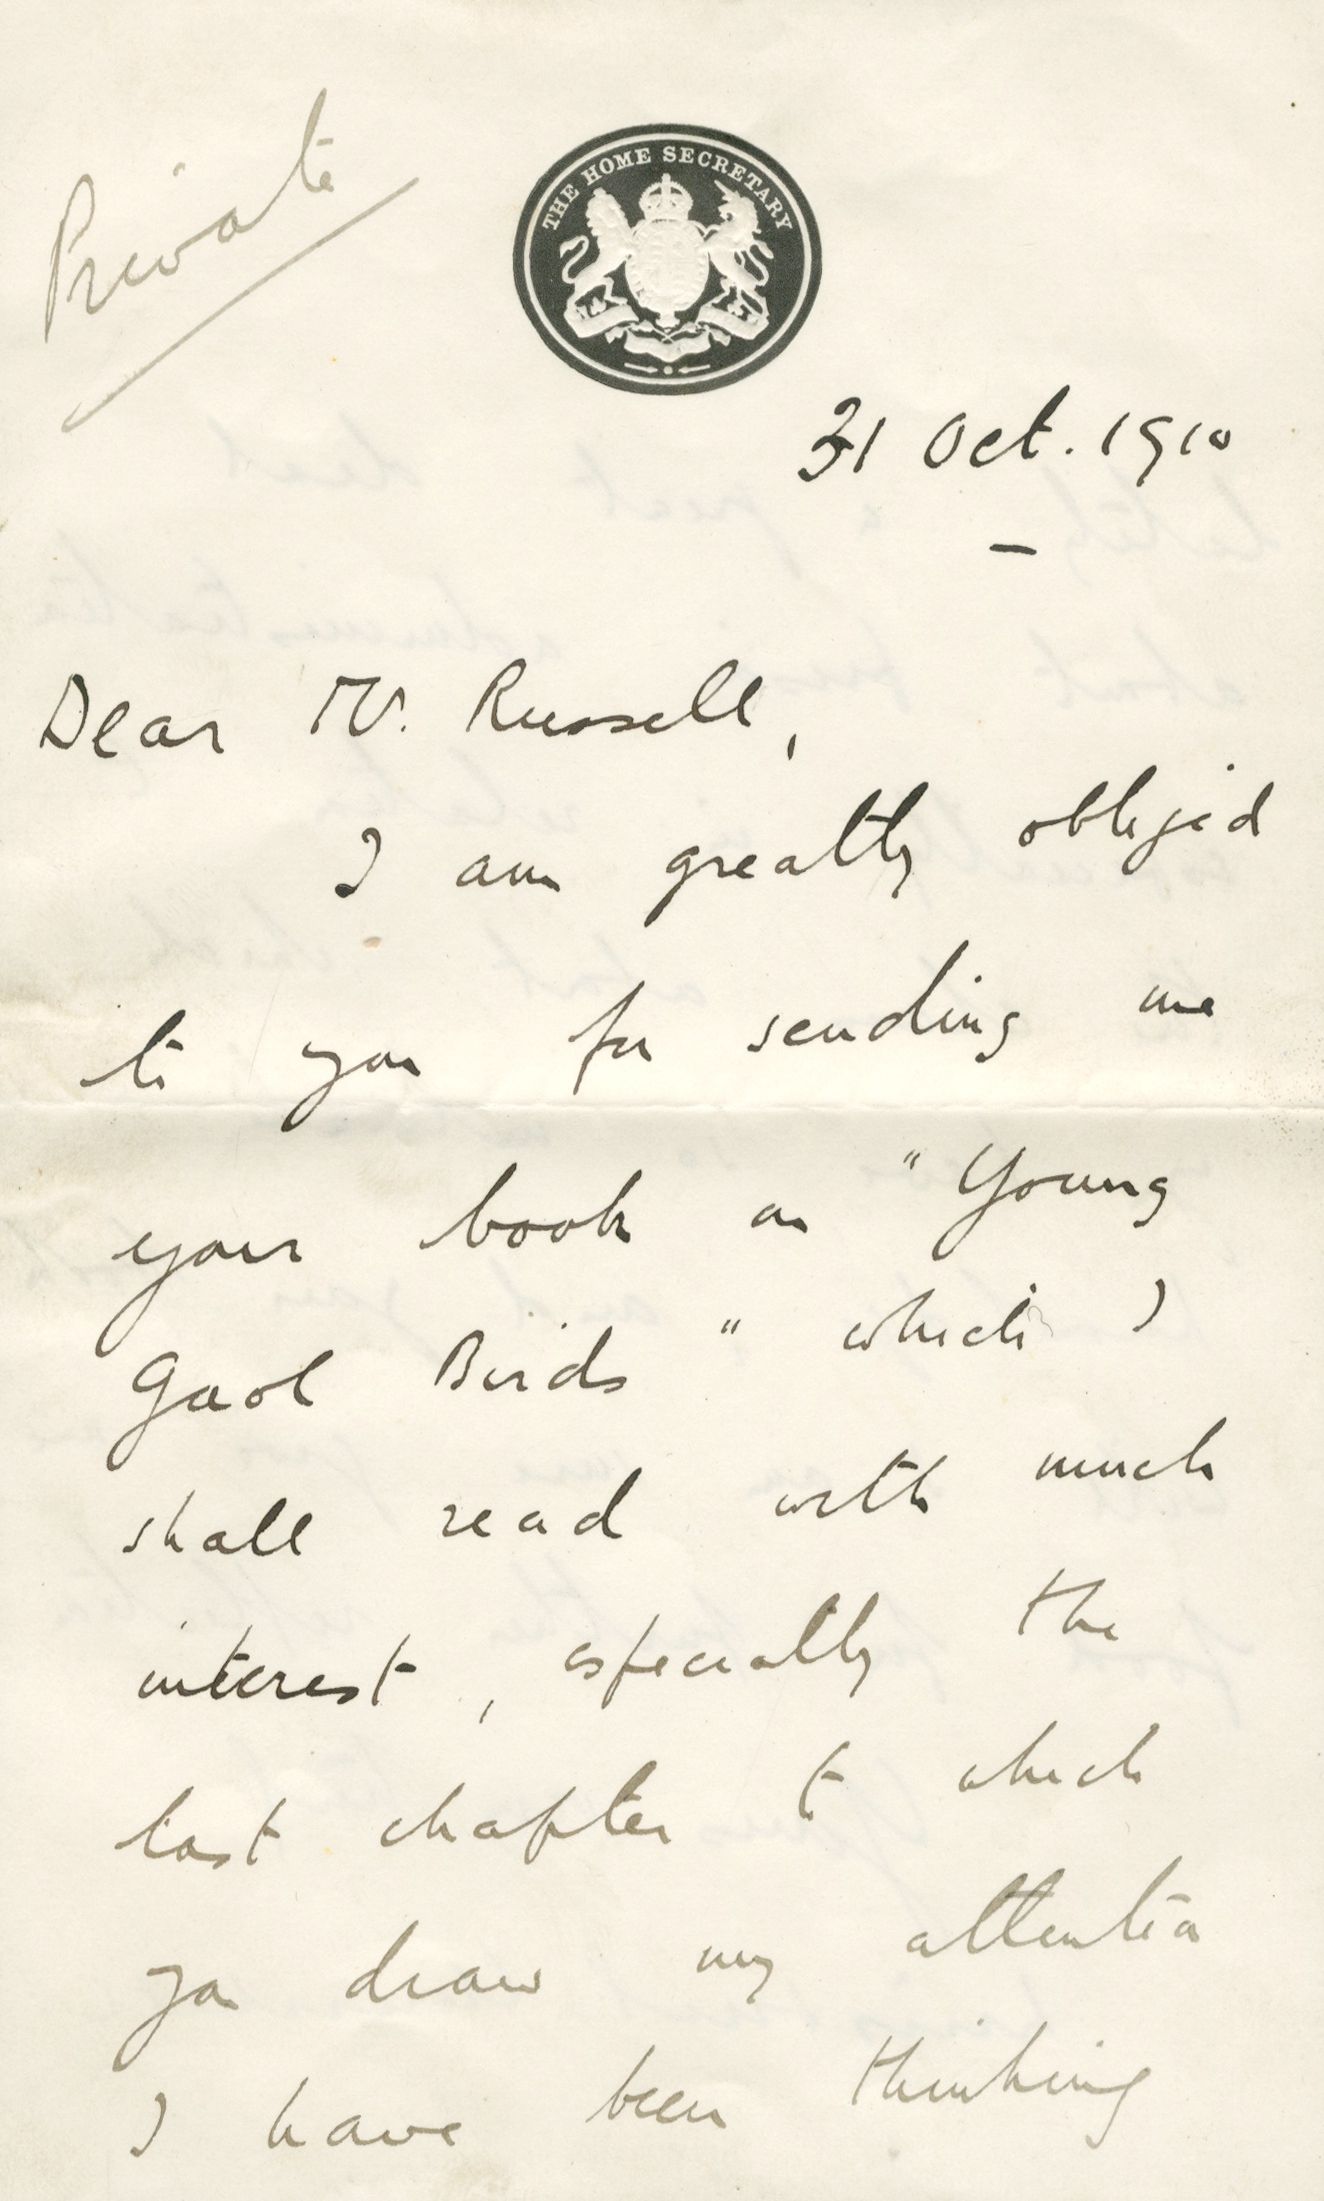 Private
THE HOME SECRETARY
31 Oct. 1910
Dear Mr. Russell,
I am greatly obliged
to you for sending me
your book on "Young
Gaol Birds" which I
shall read with much
interest, especially the
last chapter to which
you draw my attention
I have been thinking